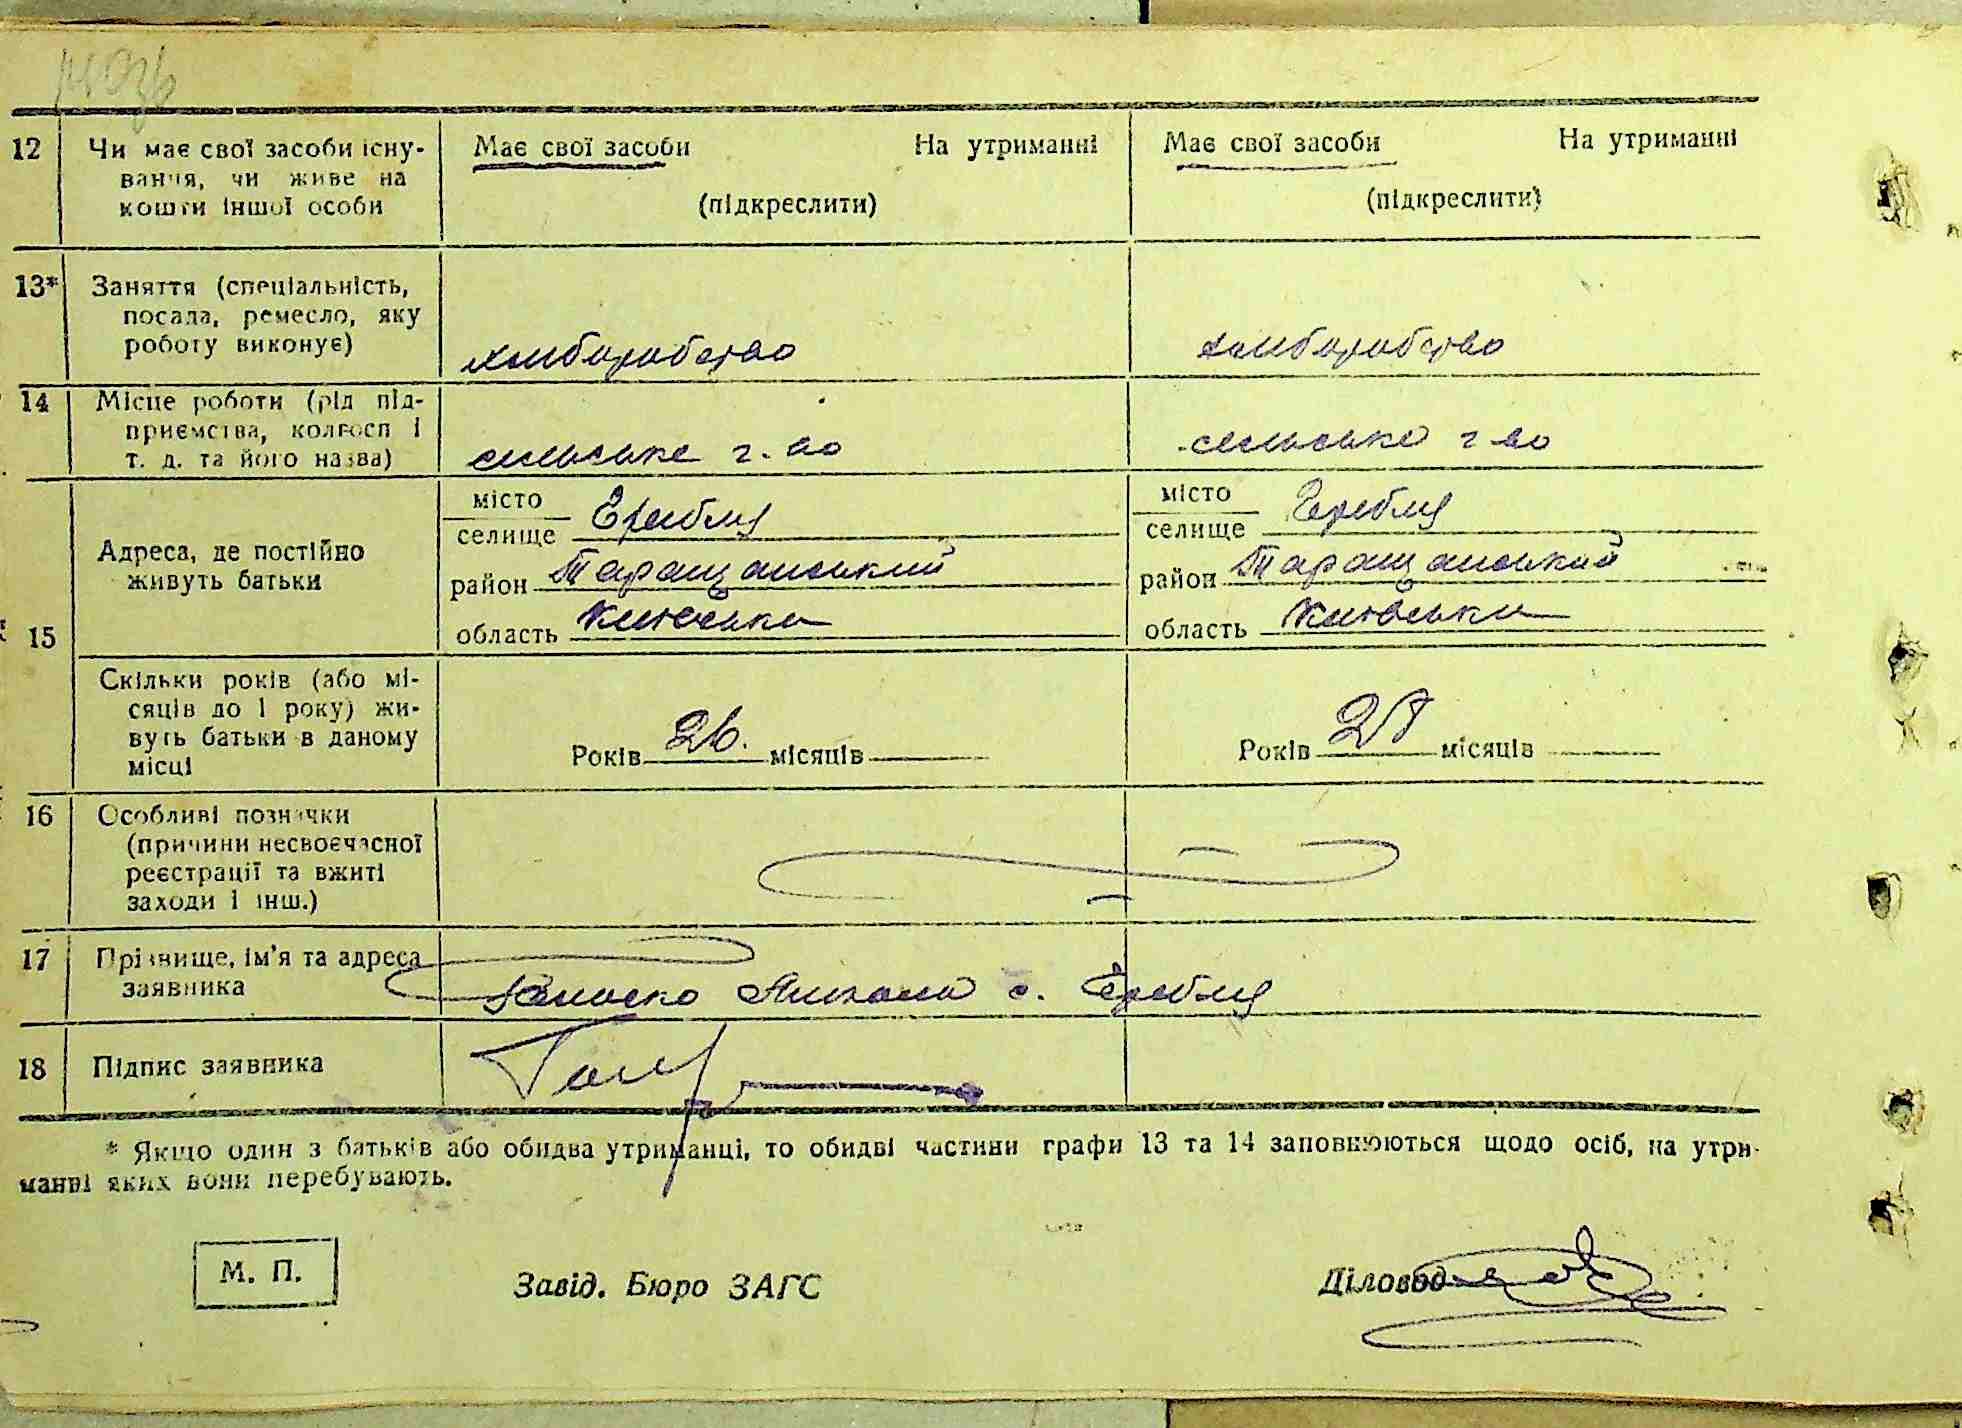 12 Чи має свої засоби існу-
вання, чи живе на
кошти іншої особи
Має свої засоби На утриманні
(підкреслити)
Має свої засоби На утриманні
(підкреслити)
13* Заняття (спеціальність,
посада, ремесло, яку
роботу виконує)
хліборобство
хліборобство
14 Місце роботи (рід під-
приємства, колгосп і
т. д. та його назва)
сільське г-во
сільське г-во
15 Адреса, де постійно
живуть батьки
місто
селище Гребля
район Таращанський
область Київська
місто
селище Гребля
район Таращанський
область Київська
Скільки років (або мі-
сяців до 1 року) жи-
вуть батьки в даному
місці
Років 26. місяців
Років 25 місяців
16 Особливі позначки
(причини несвоєчасної
реєстрації та вжиті
заходи і інш.)
17 Прізвище, ім'я та адреса
заявника
с. Гребля
18 Підпис заявника
* Якщо один з батьків або обидва утриманці, то обидві частини графи 13 та 14 заповнюються щодо осіб, на утри-
манні яких вони перебувають.
М. П.
Завід. Бюро ЗАГС
Діловод